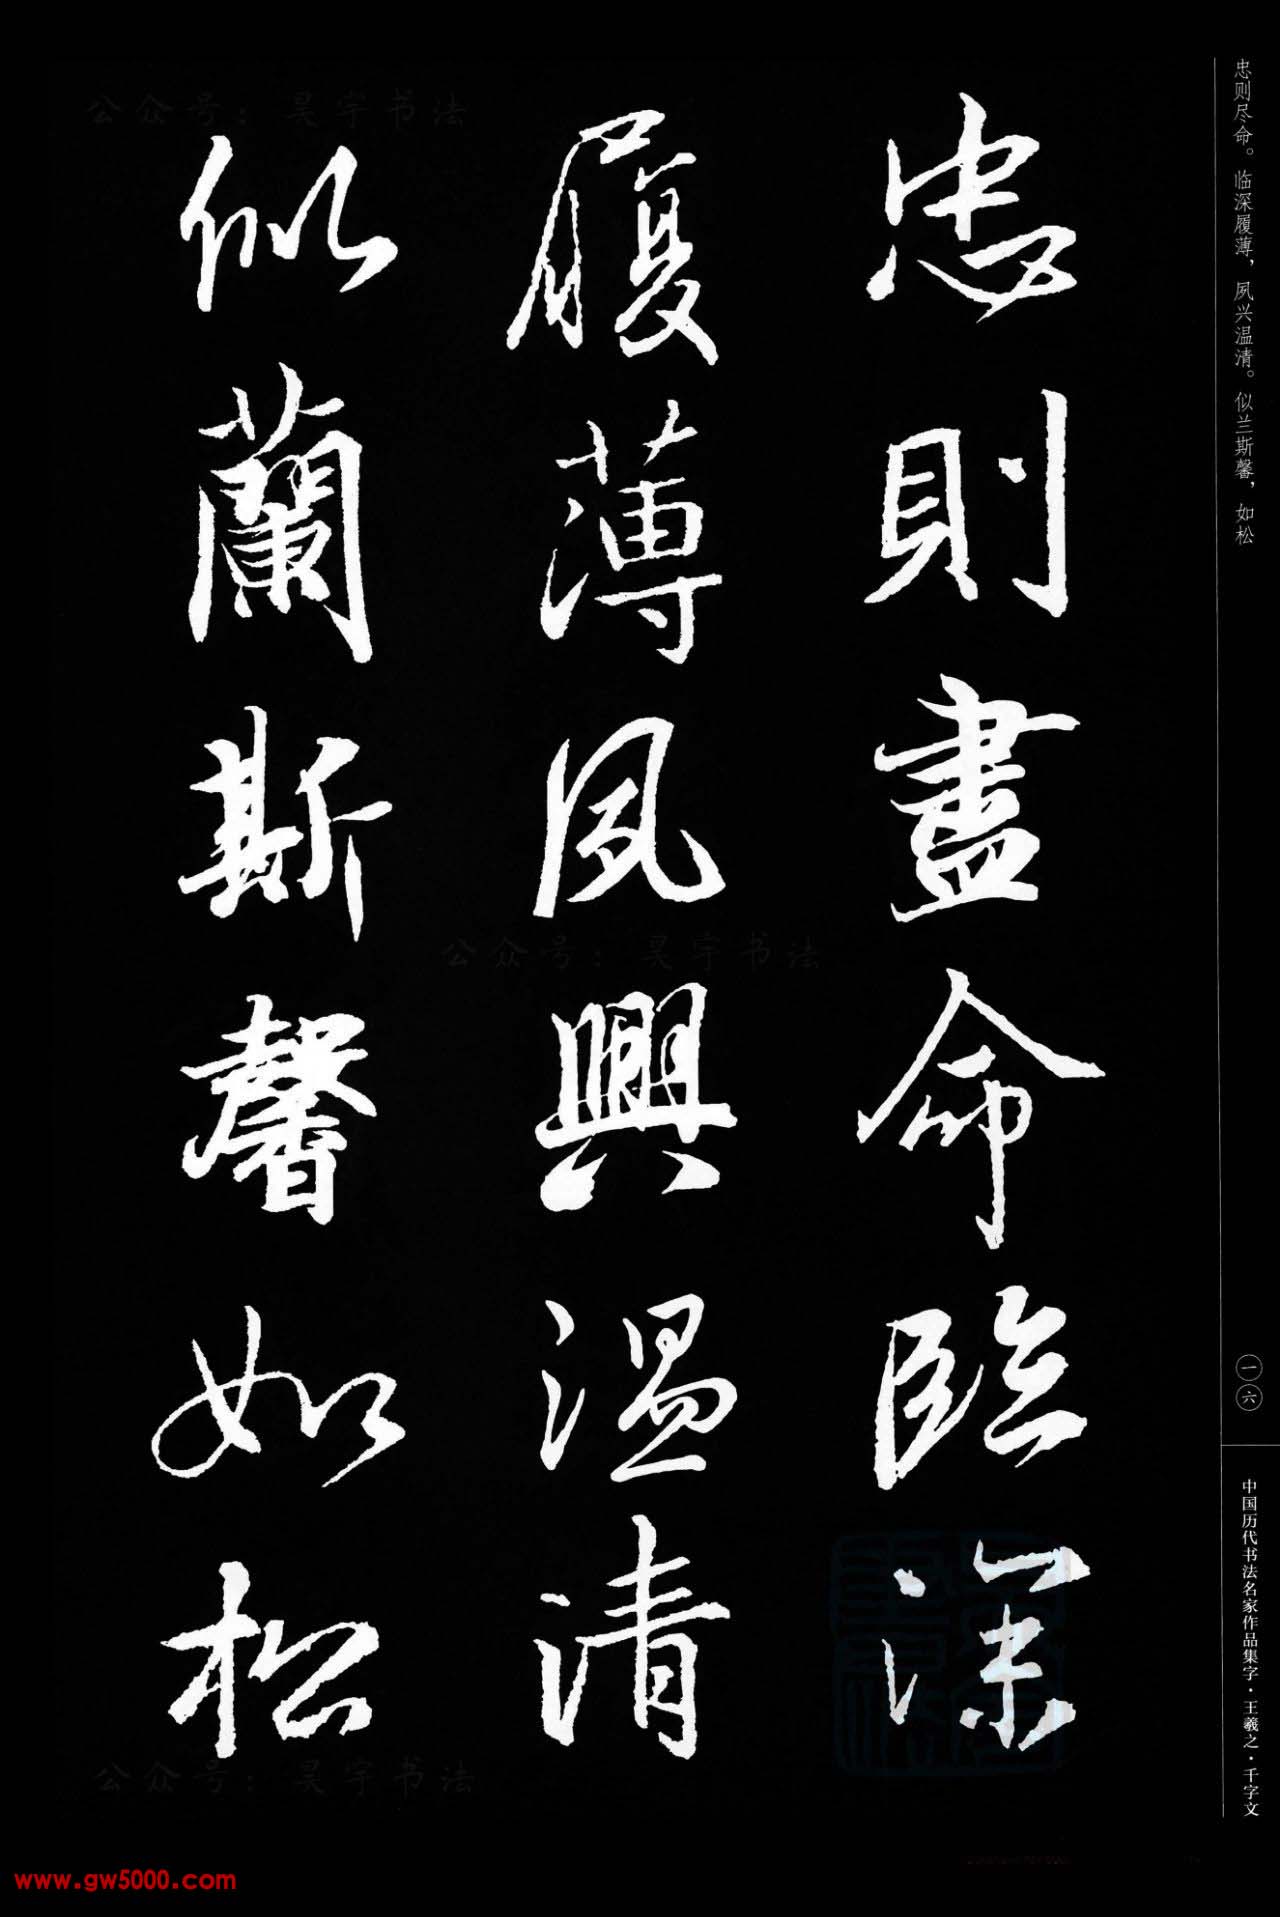 忠則盡命臨深
履薄夙興溫清
似蘭斯馨如松
忠则尽命。临深履薄，夙兴温清。似兰斯馨，如松
一六
中国历代书法名家作品集字·王羲之·千字文
公众号：昊宇书法
公众号：昊宇书法
公众号：昊宇书法
www.gw5000.com